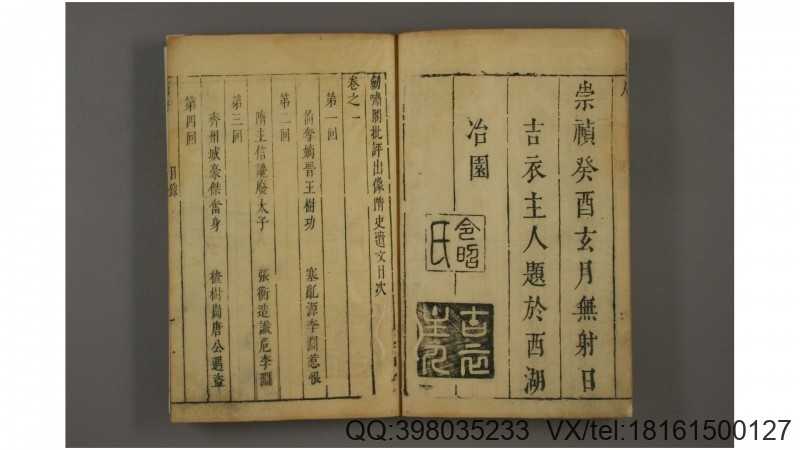 崇禎癸酉玄月無射日
吉衣主人題於西湖
冶園
令昭
氏
吉衣
主人
劍嘯閣批評出像隋史遺文目次
卷之一
第一回
偷奪嫡晉王樹功 塞亂源李淵惹恨
第二回
隋主信讒廢太子 張衡造讖危李淵
第三回
齊州城豪傑奮身 楂樹崗唐公遇盜
第四回
目錄
QQ:398035233 VX/tel:18161500127